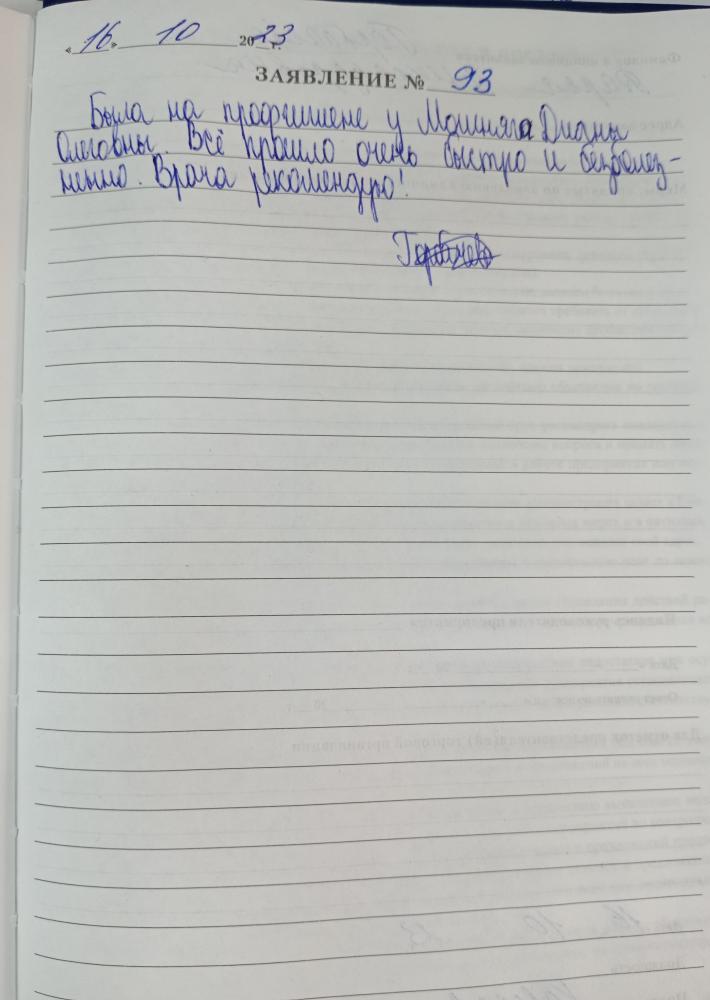 «16» 10 2023 г.
ЗАЯВЛЕНИЕ № 93
Была на профгигиене у Мошняга Дианы
Олеговны. Всё прошло очень быстро и безболез-
ненно. Врача рекомендую!